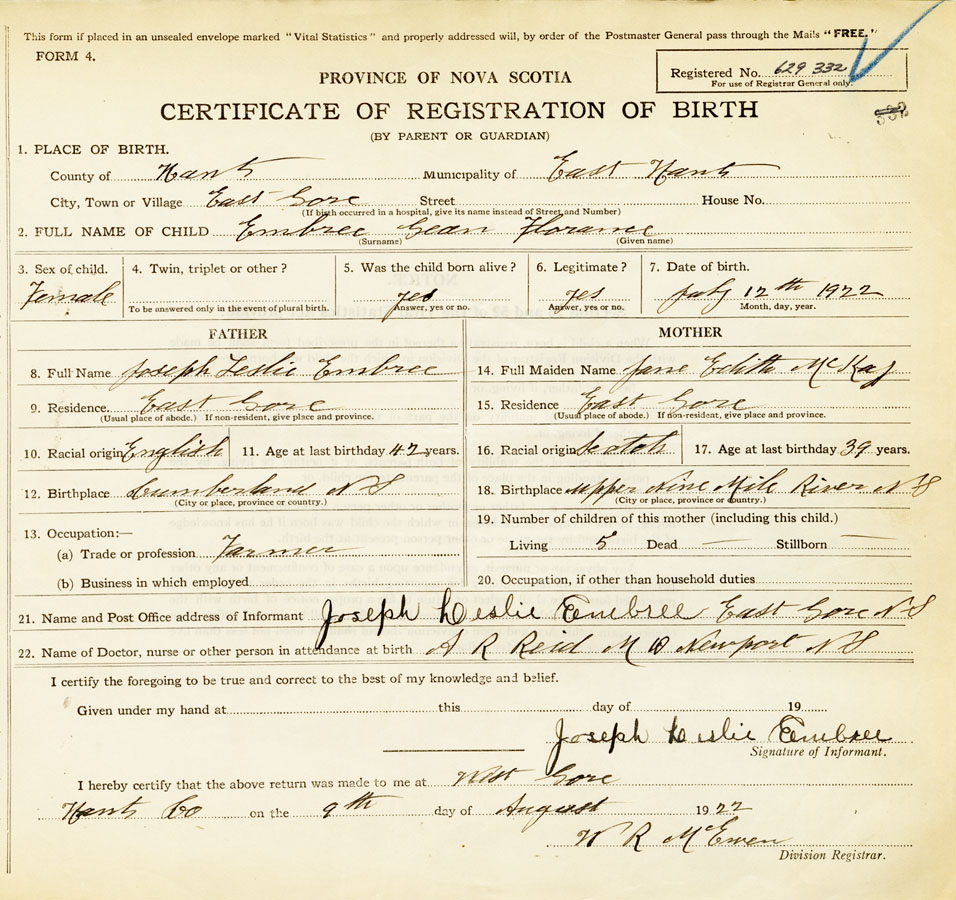 This form if placed in an unsealed envelope marked "Vital Statistics" and properly addressed will, by order of the Postmaster General pass through the Mails "FREE."
FORM 4.
Registered No. 629 332
For use of Registrar General only.
PROVINCE OF NOVA SCOTIA
332
CERTIFICATE OF REGISTRATION OF BIRTH
(BY PARENT OR GUARDIAN)
1. PLACE OF BIRTH.
County of Hants Municipality of East Hants
City, Town or Village East Gore Street House No.
(If birth occurred in a hospital, give its name instead of Street and Number)
2. FULL NAME OF CHILD Embree Gean Florance
(Surname) (Given name)
3. Sex of child. 4. Twin, triplet or other? 5. Was the child born alive? 6. Legitimate? 7. Date of birth.
Female yes yes July 12th 1922
To be answered only in the event of plural birth. Answer, yes or no. Answer, yes or no. Month, day, year.
FATHER MOTHER
8. Full Name Joseph Leslie Embree 14. Full Maiden Name Jane Edith McKay
9. Residence. East Gore 15. Residence East Gore
(Usual place of abode.) If non-resident, give place and province. (Usual place of abode.) If non-resident, give place and province.
10. Racial origin English 11. Age at last birthday 42 years. 16. Racial origin Scotch 17. Age at last birthday 39 years.
12. Birthplace Cumberland NS 18. Birthplace Upper Nine Mile River NS
(City or place, province or country.) (City or place, province or country.)
13. Occupation:— 19. Number of children of this mother (including this child.)
(a) Trade or profession Farmer Living 5 Dead — Stillborn —
(b) Business in which employed 20. Occupation, if other than household duties
21. Name and Post Office address of Informant Joseph Leslie Embree East Gore NS
22. Name of Doctor, nurse or other person in attendance at birth A R Reid MD Newport NS
I certify the foregoing to be true and correct to the best of my knowledge and belief.
Given under my hand at this day of 19
Joseph Leslie Embree
Signature of Informant.
I hereby certify that the above return was made to me at West Gore
Hants Co on the 9th day of August 1922
W R McEwen
Division Registrar.